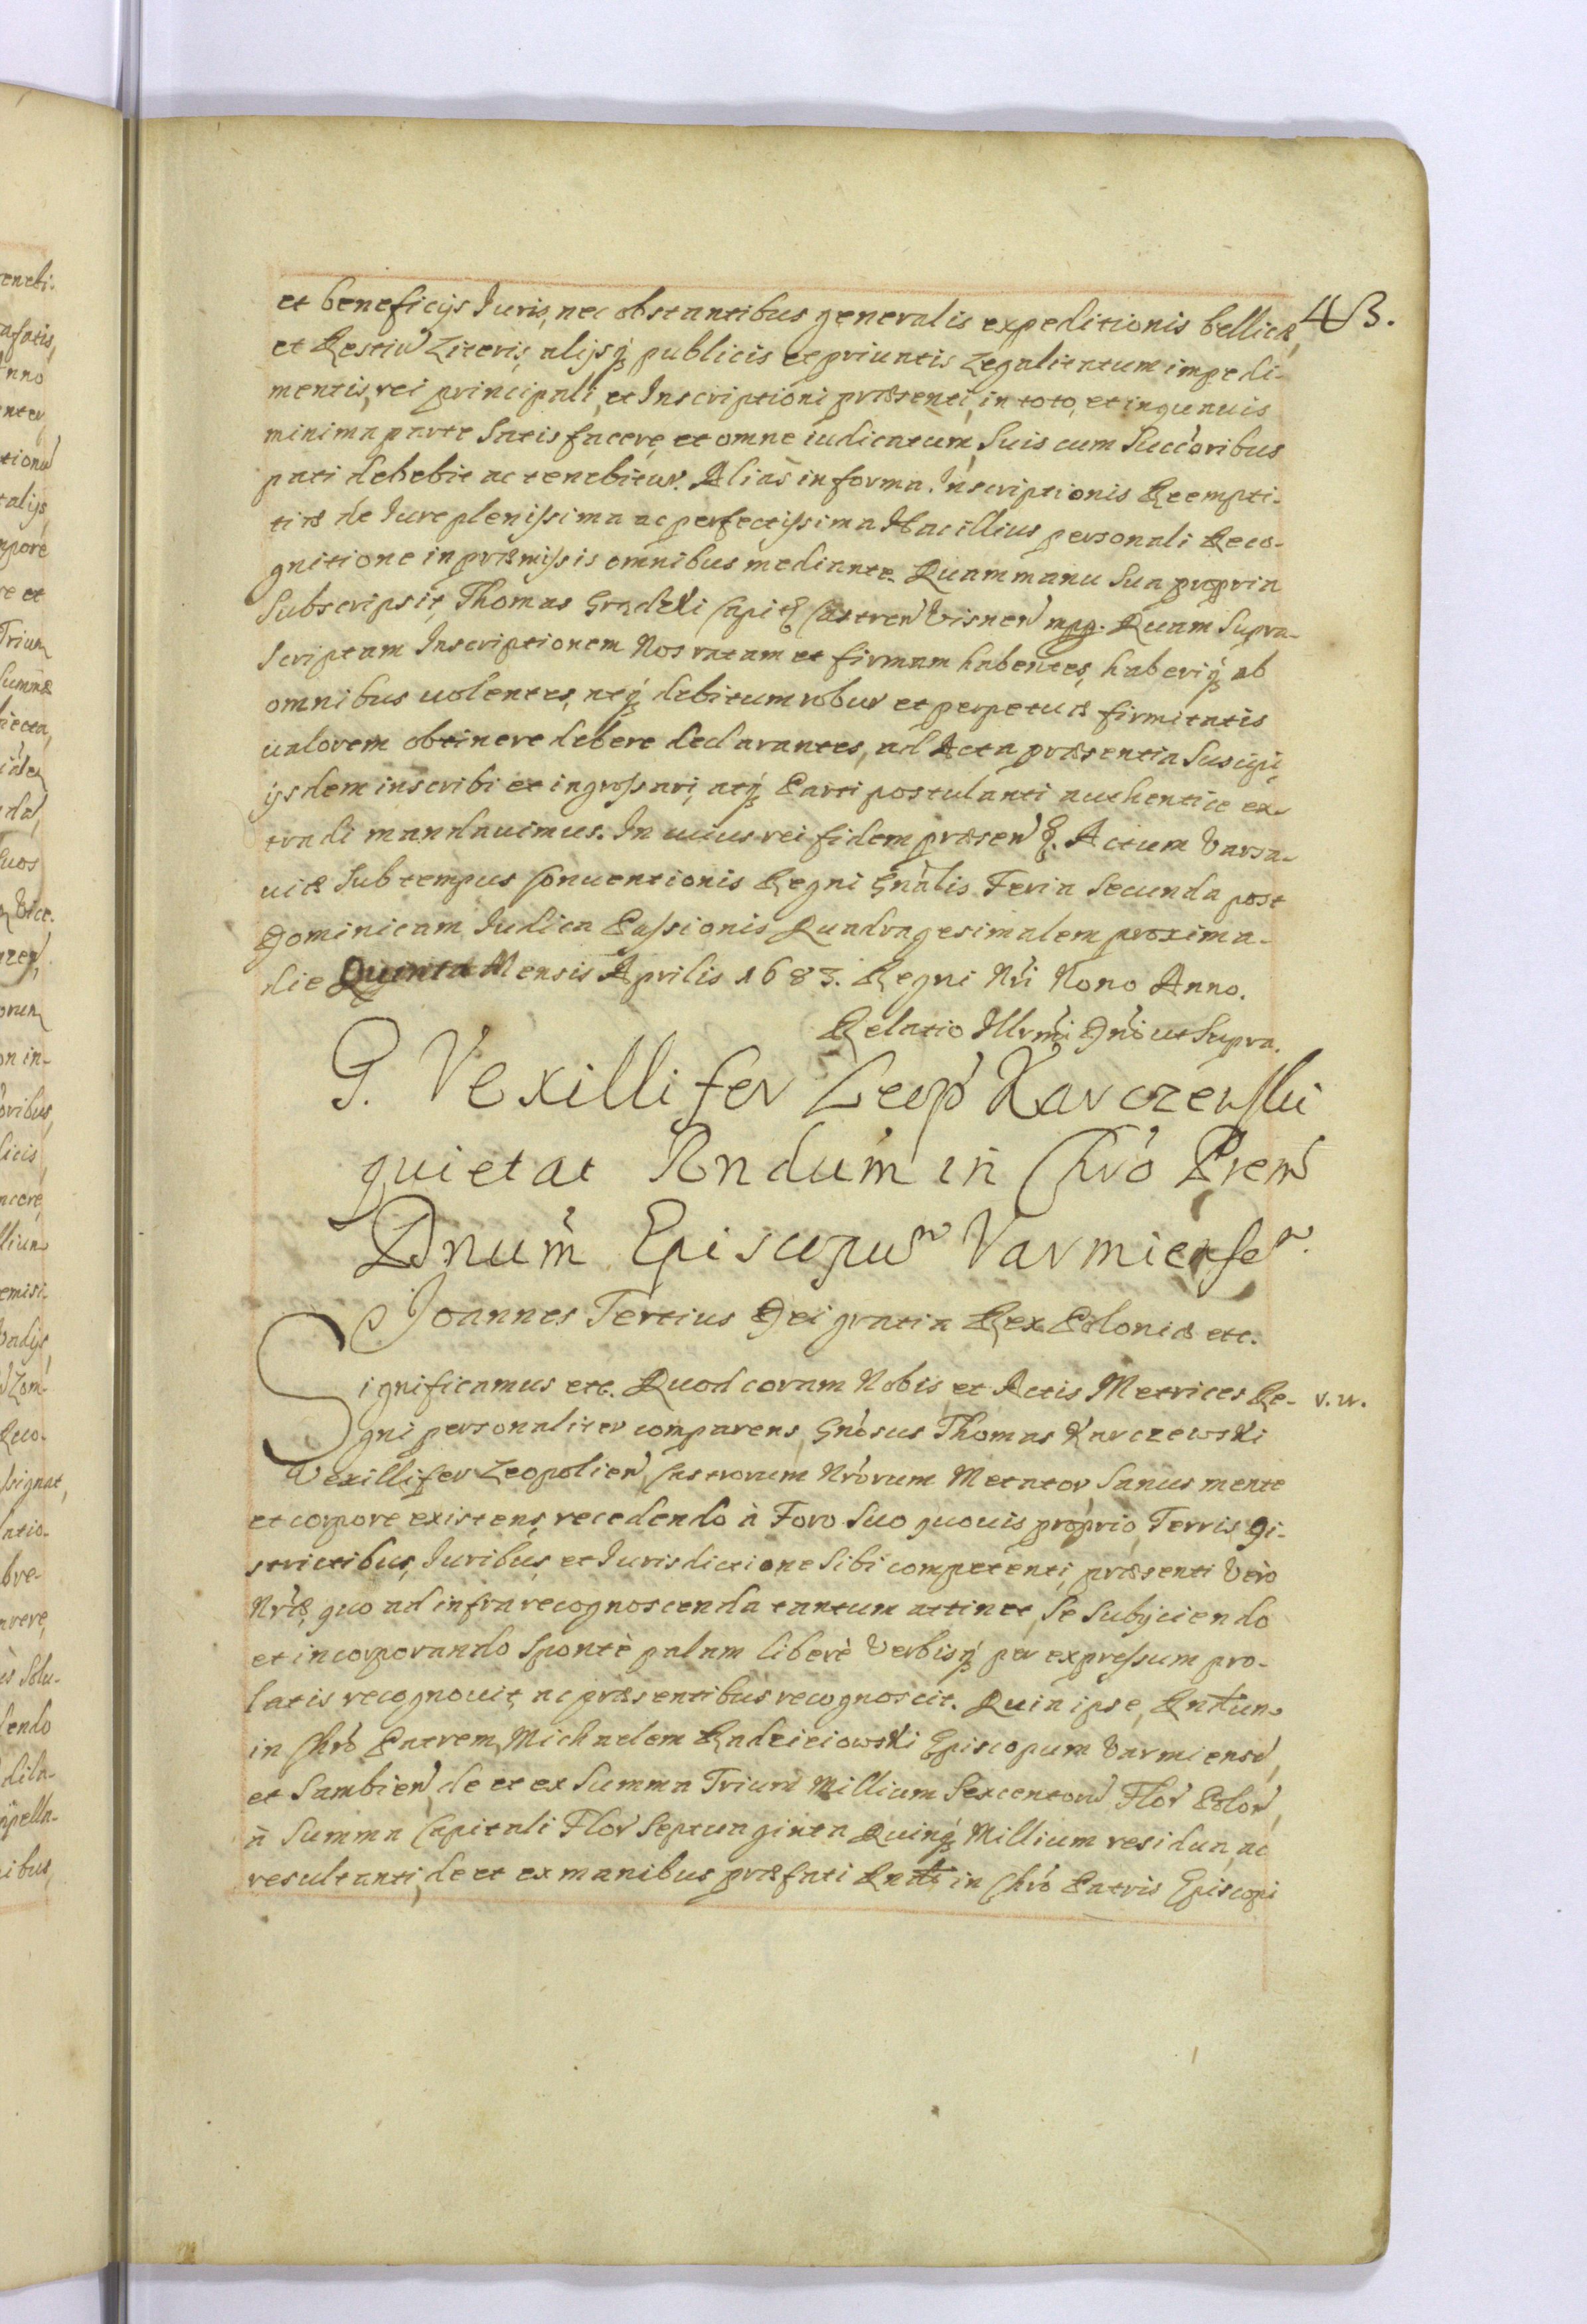 43.
et beneficijs Iuris, nec obstantibus generalis expeditionis bellicæ,
et Restiu Literis, alijsq́ꝫ publicis et priuatis Legalitatum impedi-
mentis, rei principali, et Inscriptioni præsenti, in toto, et in quauis
minima parte satisfacere, et omne iudicatum, suis cum Succ'oribus
pati debebit ac tenebitur. Alias in forma Inscriptionis Reempti-
tiæ de Iure plenissima ac perfectissima Hac illius personali Reco-
gnitione in præmissis omnibus mediante. Quam manu sua propria
Subscripsit, Thomas Gradzki Capitꝫ Castren Visnen mpp. Quam supra-
scriptam Inscriptionem Nos ratam et firmam habentes, haberiq́ꝫ ab
omnibus uolentes, atq́ꝫ debitum robur et perpetuæ firmitatis
ualorem obtinere debere declarantes, ad Acta præsentia suscipi,
ijsdem inscribi et ingrossari, atq́ꝫ Parti postulanti authentice ex-
tradi mandauimus. In cuius rei fidem præsen ꝫ. Actum Varsa-
uiæ sub tempus Conuentionis Regni Gnalis Feria Secunda post
Dominicam Iudica Passionis Quadragesimalem proxima-
die Quinta Mensis Aprilis 1683. Regni Nri Nono Anno.
Relatio Illrmi Dni ut supra.
G. Vexillifer Leop Karczewski
quietat Rndum in Chro Prem
Dnum Episcopum Varmiensem.
Joannes Tertius Dei gratia Rex Poloniæ etc.
Significamus etc. Quod coram Nobis et Actis Metrices Re- v. w.
gni personaliter comparens, Gnosus Thomas Karczewski
Vexillifer Leopolien, Castrorum Nrorum Metator, Sanus mente
et corpore existens, recedendo à Foro suo quouis proprio, Terris Di-
strictibus, Iuribus, et Iurisdictione sibi competenti, præsenti Vero
Nræ, quo ad infra recognoscenda tantum attinet, se subijciendo
et incorporando sponte palam liberè Verbisq́ꝫ per expressum pro-
latis recognouit, ac præsentibus recognoscit. Quia ipse, Rndum
in Chro Patrem Michaelem Radzieiowski Episcopum Varmiense,
et Sambien, de et ex Summa Trium Millium Sexcentoru Flor Polon,
à Summa Capitali Flor Septuaginta Quinq́ꝫ Millium residua, ac
resultanti, de et ex manibus præfati Rndi in Chro Patris Episcopi